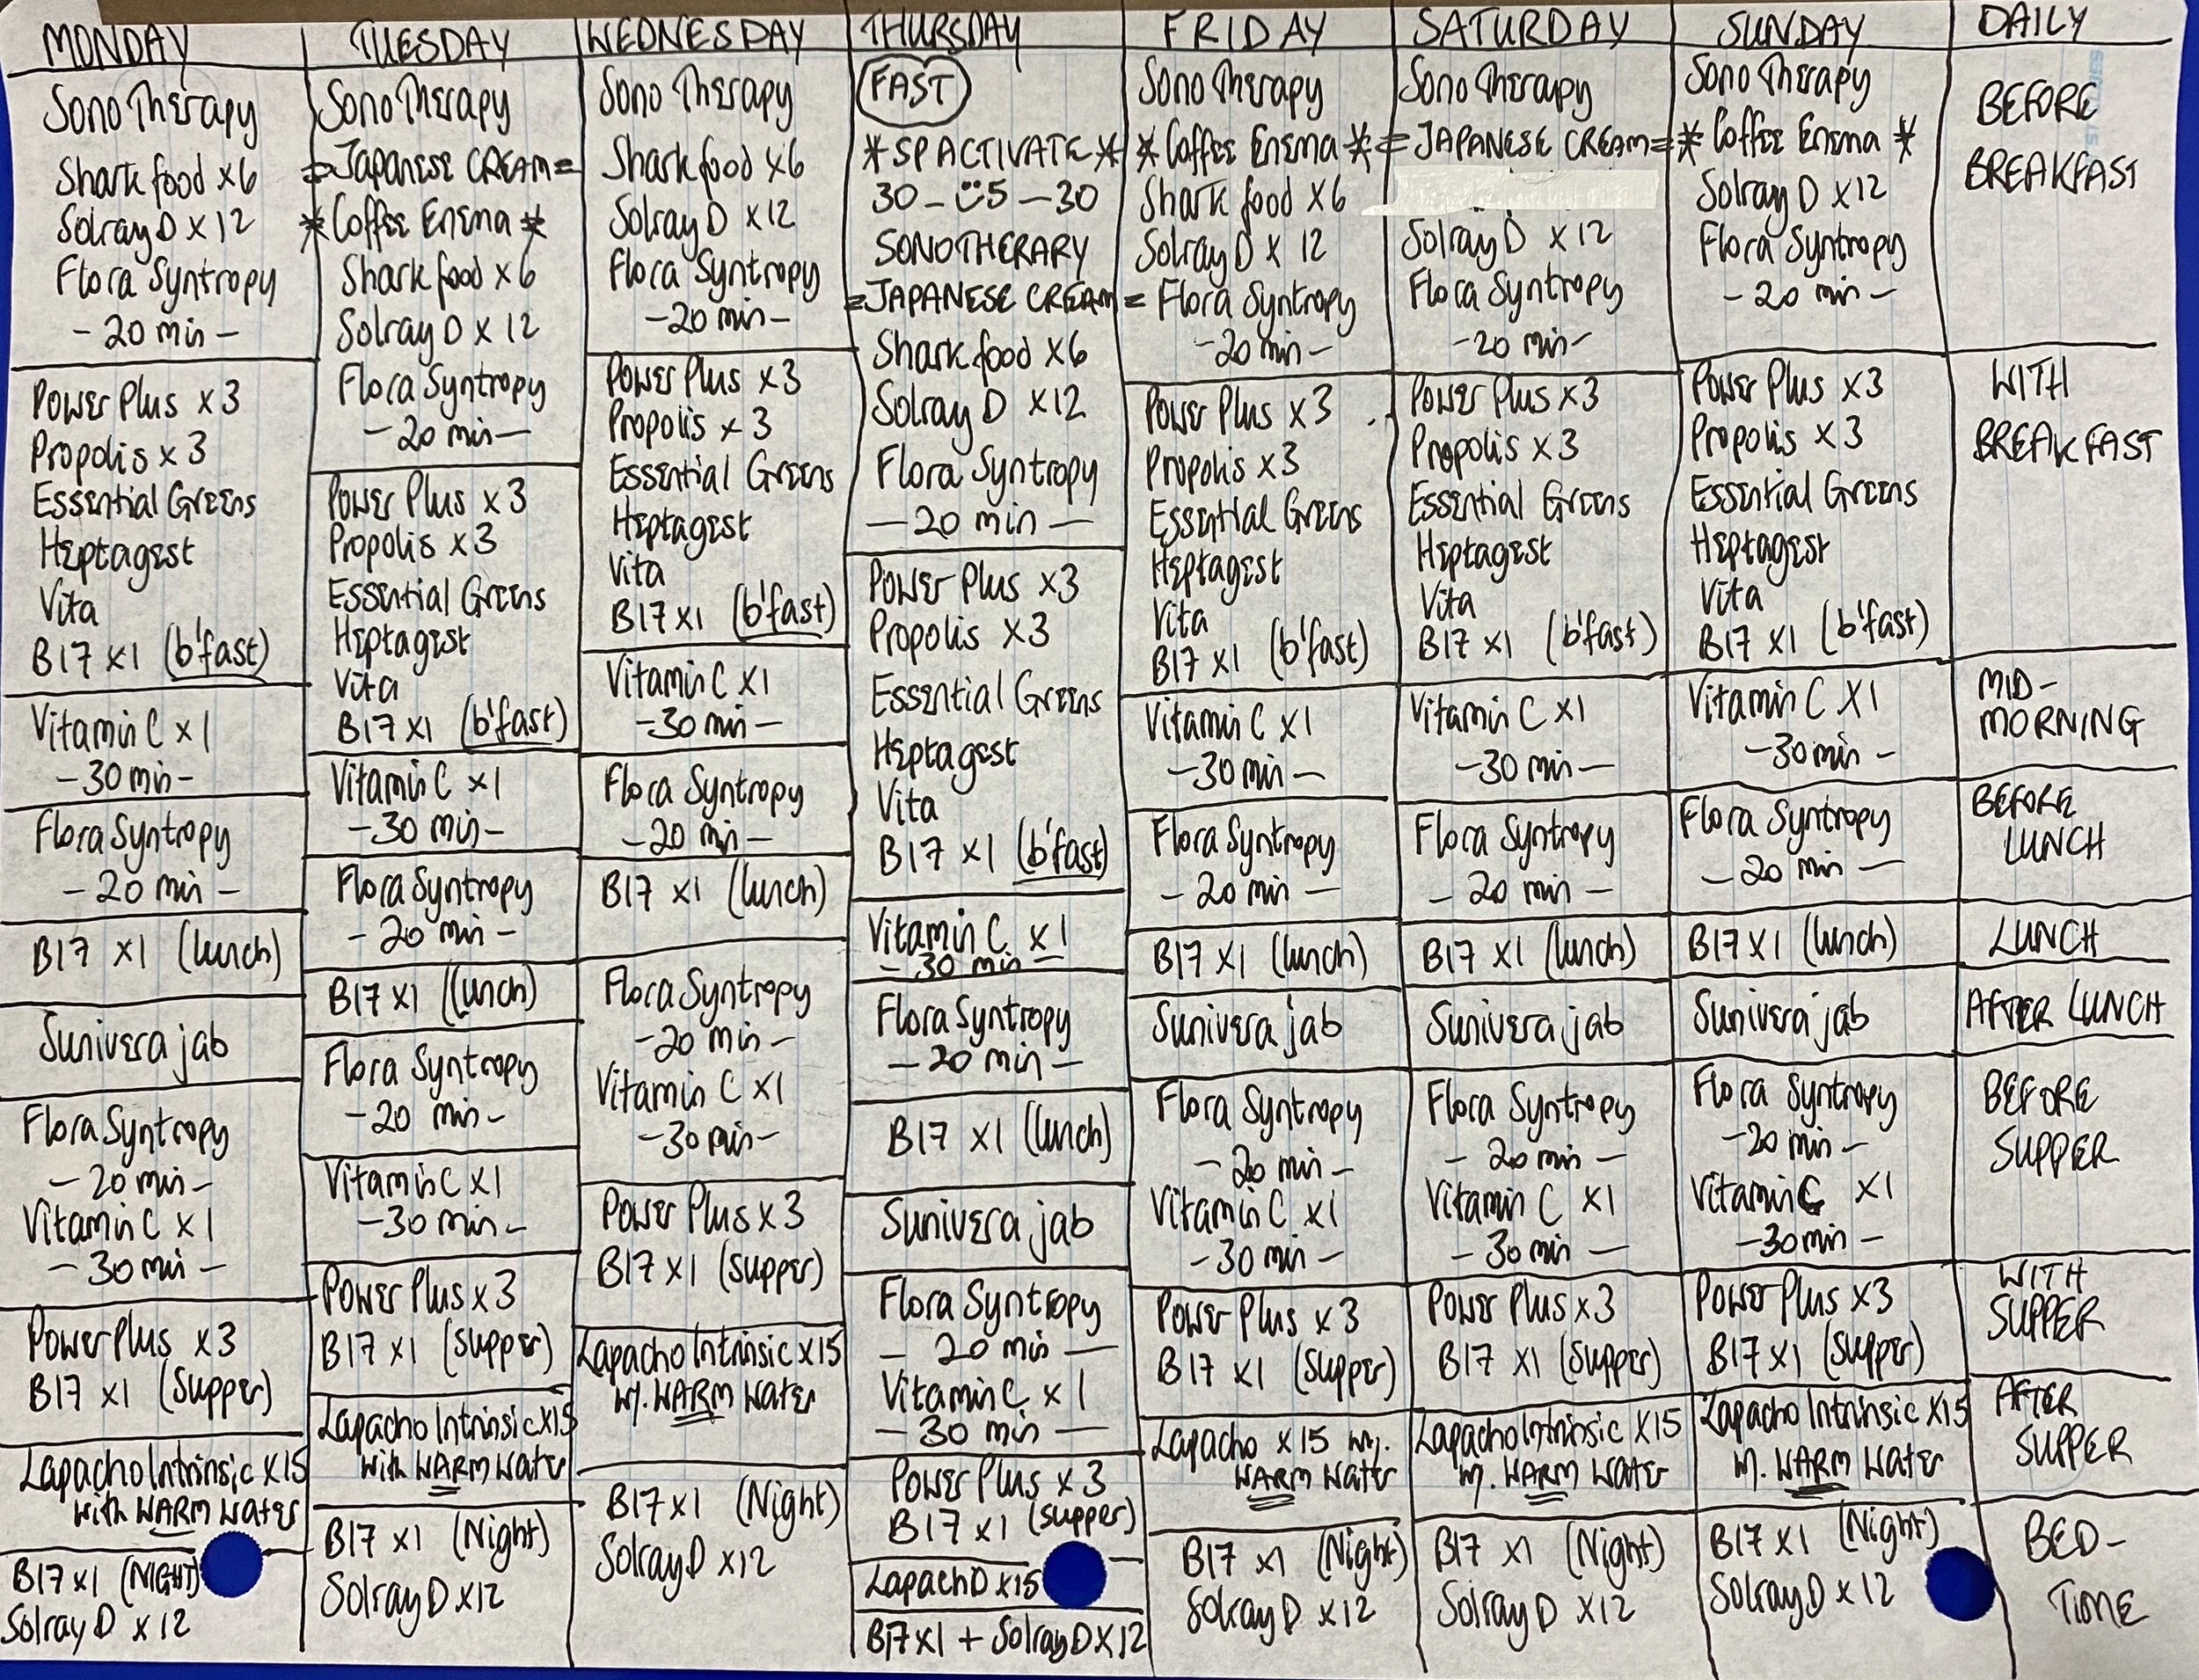 MONDAY
Sono Therapy
Shark food x6
Solray D x 12
Flora Syntropy
- 20 min -
Power Plus x3
Propolis x 3
Essential Greens
Heptagest
Vita
B17 x1 (b'fast)
Vitamin C x 1
- 30 min -
Flora Syntropy
- 20 min -
B17 x1 (lunch)
Sunivera jab
Flora Syntropy
- 20 min -
Vitamin C x 1
- 30 min -
Power Plus x3
B17 x1 (supper)
Lapacho Intrinsic x15
with WARM water
B17 x1 (NIGHT)
Solray D x 12
TUESDAY
Sono Therapy
= Japanese CREAM =
* Coffee Enema *
Shark food x6
Solray D x 12
Flora Syntropy
- 20 min -
Power Plus x3
Propolis x3
Essential Greens
Heptagest
Vita
B17 x1 (b'fast)
Vitamin C x1
- 30 min -
Flora Syntropy
- 20 min -
B17 x1 (lunch)
Flora Syntropy
- 20 min -
Vitamin C x1
- 30 min -
Power Plus x3
B17 x1 (supper)
Lapacho Intrinsic x15
with WARM water
B17 x1 (Night)
Solray D x12
WEDNESDAY
Sono Therapy
Shark food x6
Solray D x12
Flora Syntropy
- 20 min -
Power Plus x3
Propolis x 3
Essential Greens
Heptagest
Vita
B17 x1 (b'fast)
Vitamin C x1
- 30 min -
Flora Syntropy
- 20 min -
B17 x1 (lunch)
Flora Syntropy
- 20 min -
Vitamin C x1
- 30 min -
Power Plus x3
B17 x1 (supper)
Lapacho Intrinsic x15
w/. WARM water
B17 x1 (Night)
Solray D x12
THURSDAY
FAST
* SP ACTIVATE *
30 - 5 - 30
SONOTHERARY
= JAPANESE CREAM =
Shark food x6
Solray D x12
Flora Syntropy
- 20 min -
Power Plus x3
Propolis x3
Essential Greens
Heptagest
Vita
B17 x1 (b'fast)
Vitamin C x1
- 30 min -
Flora Syntropy
- 20 min -
B17 x1 (lunch)
Sunivera jab
Flora Syntropy
- 20 min -
Vitamin C x 1
- 30 min -
Power Plus x 3
B17 x1 (supper)
Lapacho x15
B17 x1 + Solray D x12
FRIDAY
Sono Therapy
* Coffee Enema *
Shark food x6
Solray D x 12
Flora Syntropy
- 20 min -
Power Plus x3
Propolis x3
Essential Greens
Heptagest
Vita
B17 x1 (b'fast)
Vitamin C x1
- 30 min -
Flora Syntropy
- 20 min -
B17 x1 (lunch)
Sunivera jab
Flora Syntropy
- 20 min -
Vitamin C x1
- 30 min -
Power Plus x3
B17 x1 (supper)
Lapacho x15 w/.
WARM water
B17 x1 (Night)
Solray D x12
SATURDAY
Sono Therapy
= JAPANESE CREAM =
Solray D x12
Flora Syntropy
- 20 min -
Power Plus x3
Propolis x3
Essential Greens
Heptagest
Vita
B17 x1 (b'fast)
Vitamin C x1
- 30 min -
Flora Syntropy
- 20 min -
B17 x1 (lunch)
Sunivera jab
Flora Syntropy
- 20 min -
Vitamin C x1
- 30 min -
Power Plus x3
B17 x1 (supper)
Lapacho Intrinsic x15
w. WARM water
B17 x1 (Night)
Solray D x12
SUNDAY
Sono Therapy
* Coffee Enema *
Solray D x12
Flora Syntropy
- 20 min -
Power Plus x3
Propolis x3
Essential Greens
Heptagest
Vita
B17 x1 (b'fast)
Vitamin C x1
- 30 min -
Flora Syntropy
- 20 min -
B17 x1 (lunch)
Sunivera jab
Flora Syntropy
- 20 min -
Vitamin C x1
- 30 min -
Power Plus x3
B17 x1 (supper)
Lapacho Intrinsic x15
w. WARM water
B17 x1 (Night)
Solray D x12
DAILY
BEFORE
BREAKFAST
WITH
BREAKFAST
MID-
MORNING
BEFORE
LUNCH
LUNCH
AFTER LUNCH
BEFORE
SUPPER
WITH
SUPPER
AFTER
SUPPER
BED-
TIME